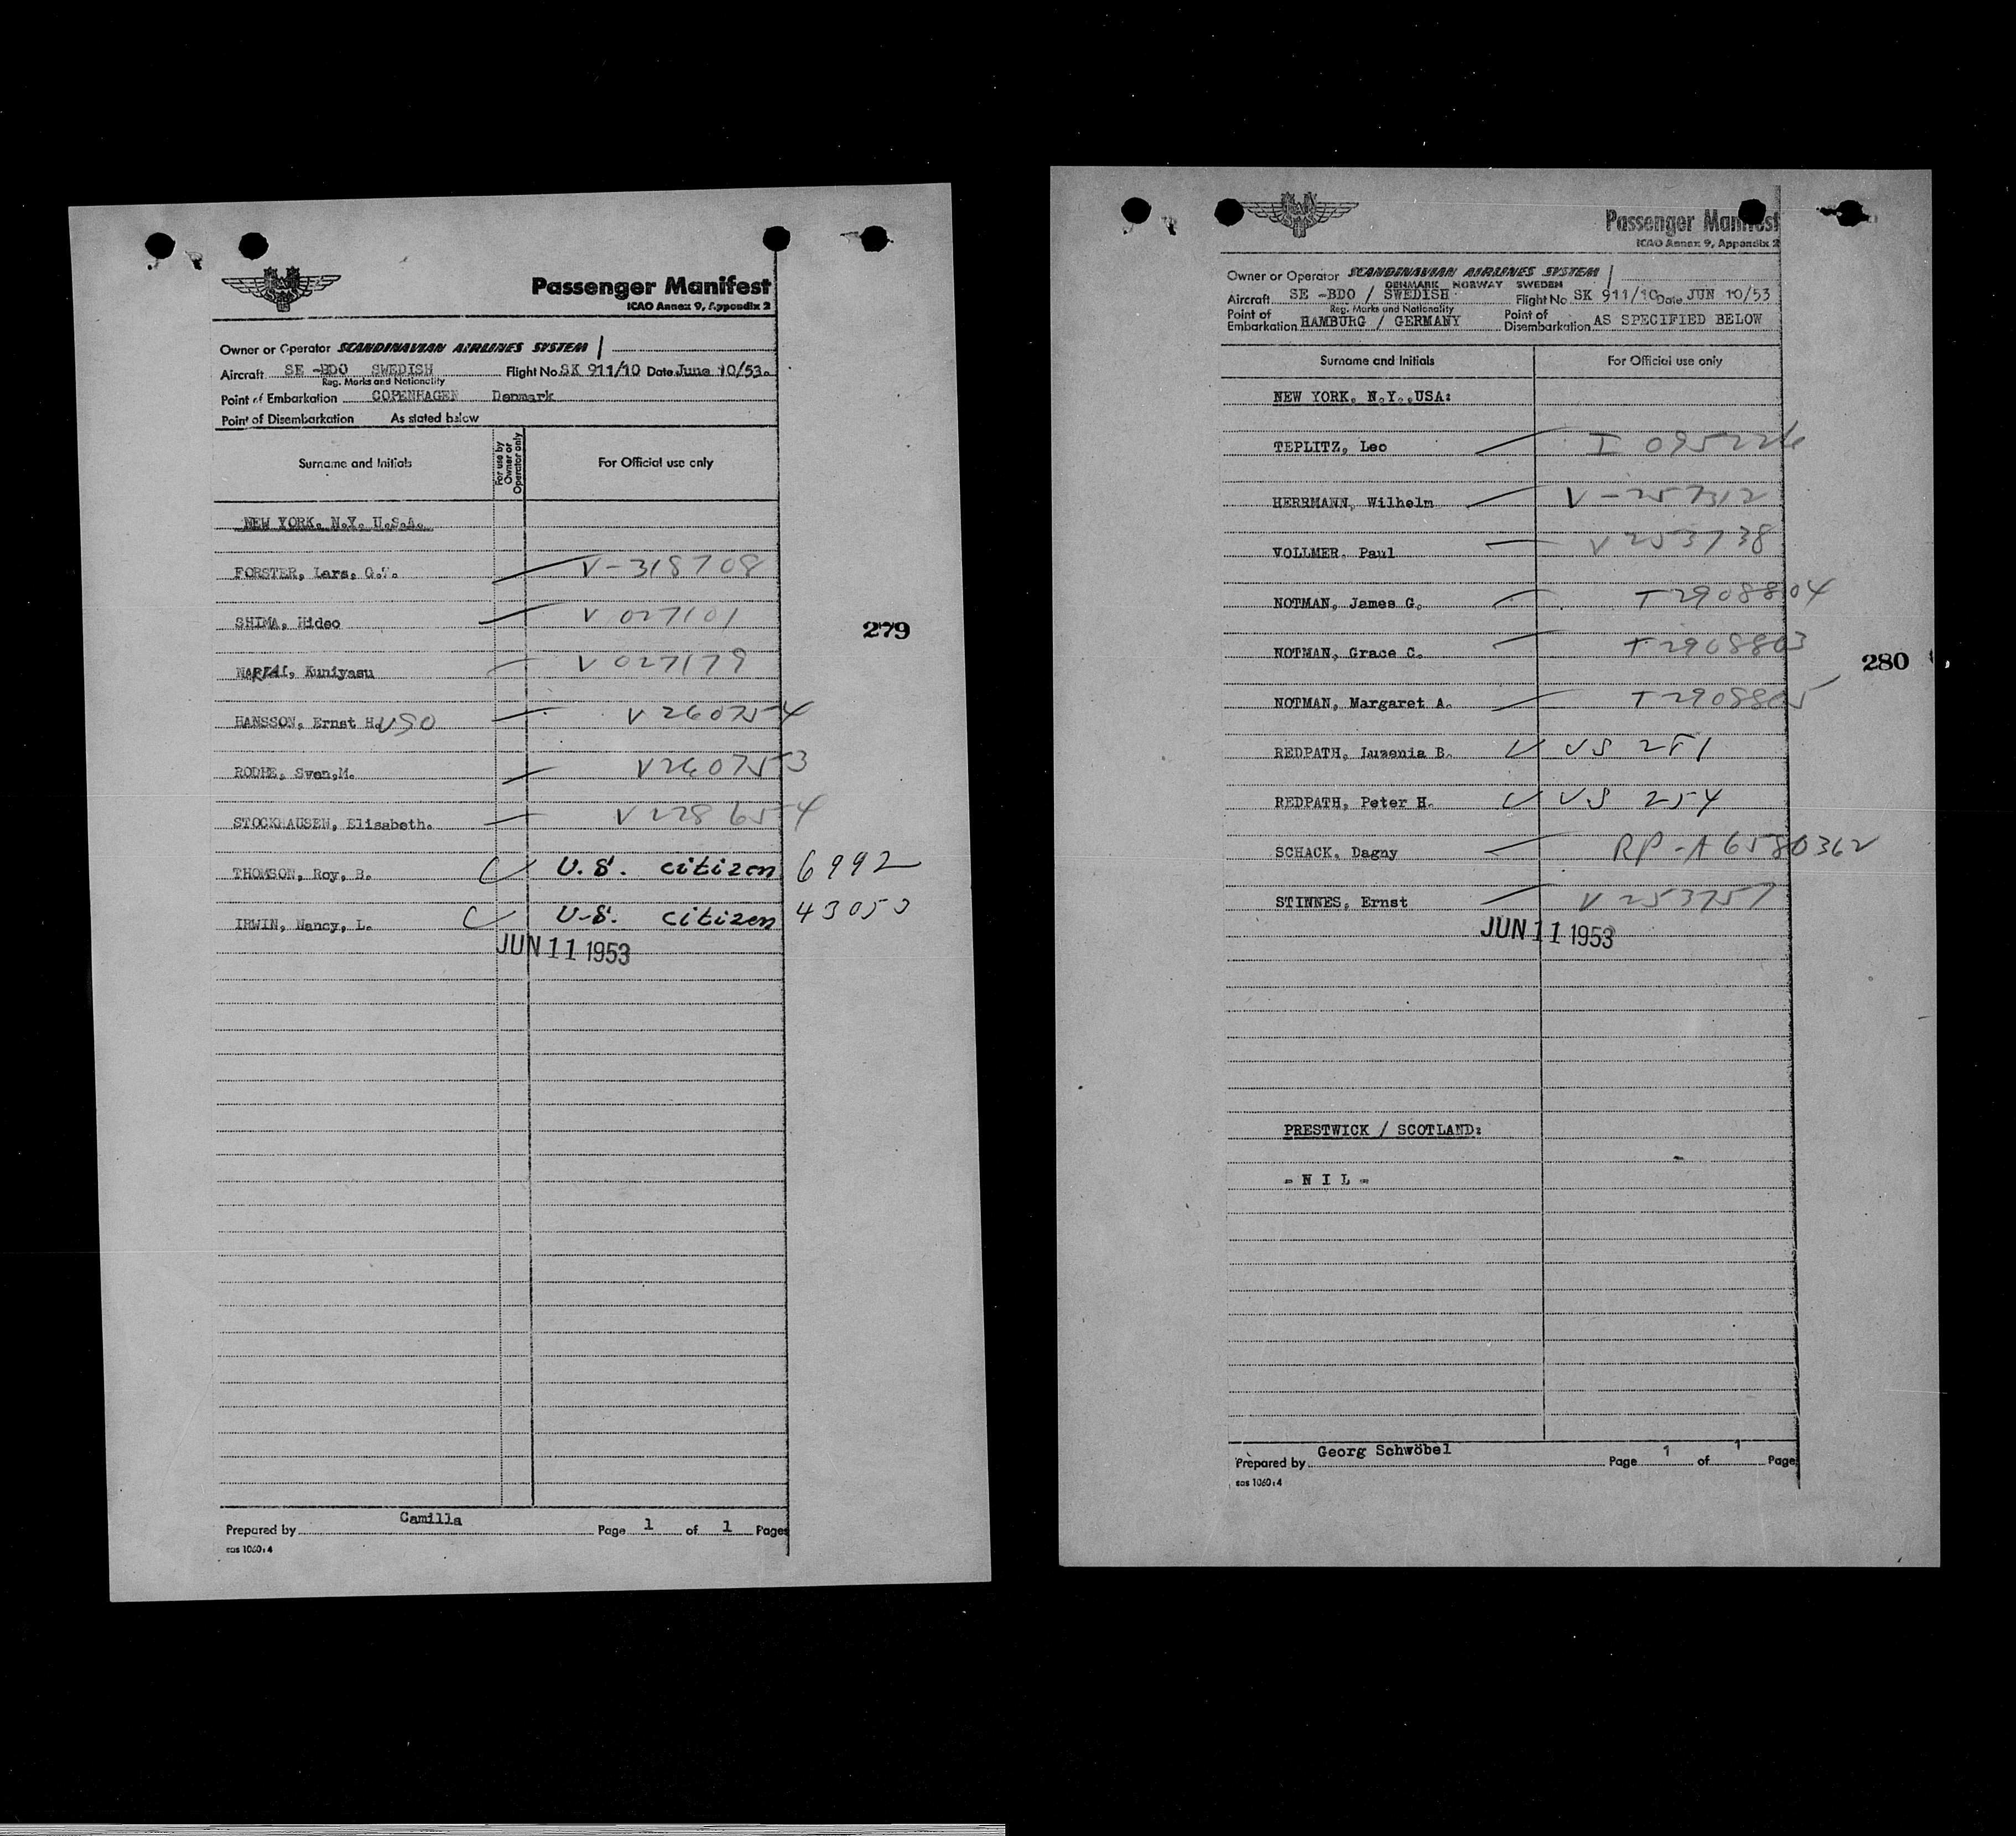 Passenger Manifest
ICAO Annex 9, Appendix 2
Owner or Operator SCANDINAVIAN AIRLINES SYSTEM
Aircraft SE -BDO SWEDISH Flight No. SK 911/10 Date June 10/53.
Reg. Marks and Nationality
Point of Embarkation COPENHAGEN Denmark
Point of Disembarkation As stated below
Surname and Initials For use by Owner or Operator only For Official use only
NEW YORK. N.Y. U.S.A.
FORSTER, Lars, G.T. V-318708
SHIMA, Hideo V 027101
Kuniyasu V 027179
HANSSON, Ernst H. V 260754
RODHE, Sven,M. V260753
STOCKHAUSEN, Elisabeth. V 228654
THOMSON, Roy, B. U.S. citizen 6992
IRWIN, Nancy, L. U.S. citizen 43053
JUN 11 1953
279
Prepared by Camilla Page 1 of 1 Pages
sas 1060:4
Passenger Manifest
ICAO Annex 9, Appendix 2
Owner or Operator SCANDINAVIAN AIRLINES SYSTEM
DENMARK NORWAY SWEDEN
Aircraft SE -BDO / SWEDISH Flight No SK 911/10 Date JUN 10/53
Reg. Marks and Nationality
Point of Embarkation HAMBURG / GERMANY Point of Disembarkation AS SPECIFIED BELOW
Surname and Initials For Official use only
NEW YORK, N.Y.,USA:
TEPLITZ, Leo I 095226
HERRMANN, Wilhelm V-257312
VOLLMER, Paul V 253738
NOTMAN, James G. T 2908804
NOTMAN, Grace C. T 2908803
NOTMAN, Margaret A. T 2908805
REDPATH, Luzenia B. US 251
REDPATH, Peter H. US 254
SCHACK, Dagny RP-A6580362
STINNES, Ernst V 253757
JUN 11 1953
280
PRESTWICK / SCOTLAND:
- N I L -
Prepared by Georg Schwöbel Page 1 of 1 Page
sas 1060:4